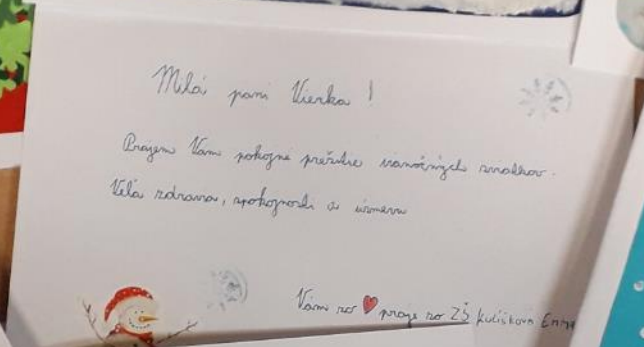 Milá pani Vierka!
Prajem Vám pokojné prežitie vianočných sviatkov.
Veľa zdravia, spokojnosti a úsmevu
Vám zo ❤ praje zo ZŠ Kulíškova Emma